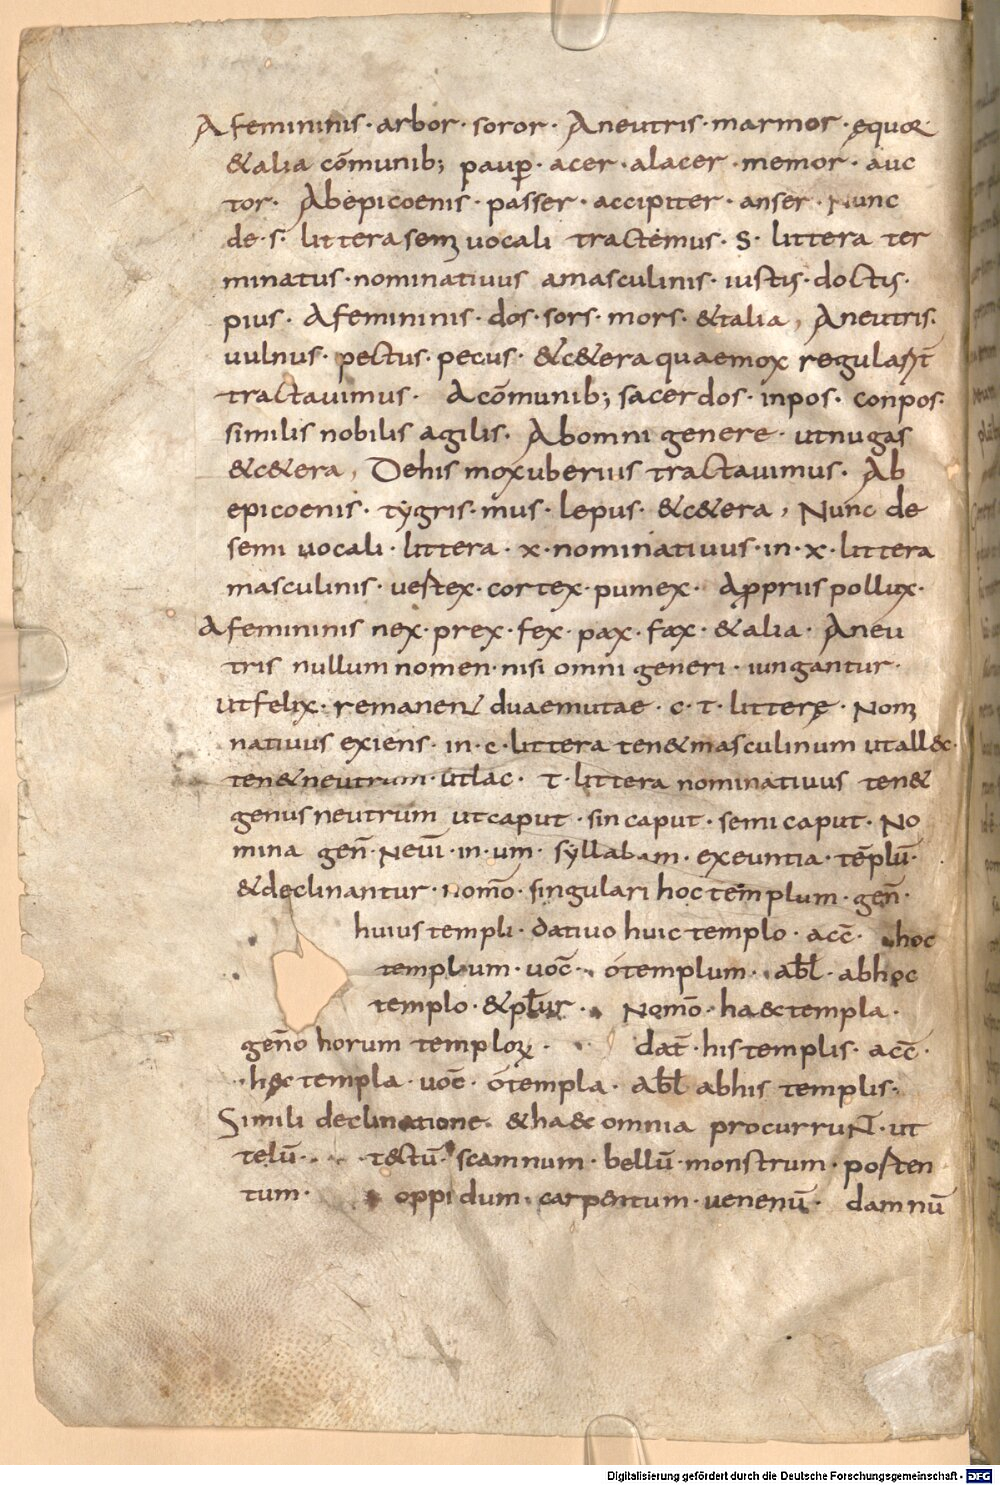 A femininis · arbor · soror · A neutris · marmor · ęquor
&alia cōmunib; paup̄ · acer · alacer · memor · auc
tor · Ab epicoenis · passer · accipiter · anser · Nunc
de · s · littera sem uocali tractemus · S · littera ter
minatus · nominatiuus a masculinis · iustus · doctus ·
pius · A femininis · dos · sors · mors · &talia, A neutris ·
uulnus · pectus · pecus · &c&era quae mox
tractauimus · A cōmunib; sacerdos · inpos · conpos ·
similis nobilis agilis · Ab omni genere · ut nugas
&c&era, De his mox uberius tractauimus · Ab
epicoenis · tygris · mus · lepus · &c&era, Nunc de
semi uocali · littera · x · nominatiuus · in · x · littera
masculinis · uertex · cortex · pumex · A ppriis pollux ·
A femininis nex · prex · fex · pax · fax · &alia · A neu
tris nullum nomen · nisi omni generi · iungantur ·
ut felix · remanent duae mutae · c · t · litterę · Nom
natiuus exiens · in · c · littera ten& masculinum ut all&c ·
ten& neutrum · ut lac · t · littera nominatiuus ten&
genus neutrum ut caput · sincaput · semicaput · No
mina gen̄ · Neut̄ · in · um · syllabam · exeuntia · tēplū ·
&declinantur · nomō · singulari hoc templum · gen̄ ·
huius templi · datiuo huic templo · acc̄ · hoc
templum · uoc̄ · ó templum · abl̄ · ab hoc
templo · &plur · Nomō · haec templa ·
gen̄o horum templorum · dat̄ · his templis · acc̄ ·
hęc templa · uoc̄ · ó templa · abl̄ ab his templis ·
Simili declinatione · &ha&c omnia procurruNT · ut
telū · t&ctū · scamnum · bellū · monstrum · porten
tum · oppidum · carpentum · uenenū · damnū
Digitalisierung gefördert durch die Deutsche Forschungsgemeinschaft - DFG